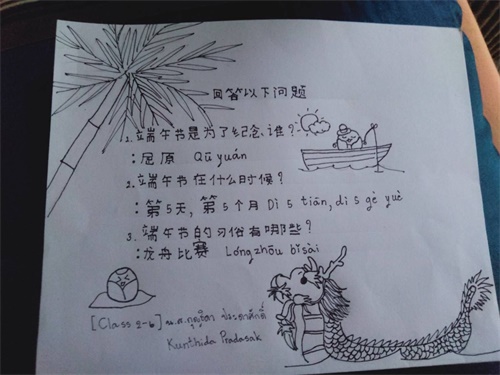 回答以下问题
1. 端午节是为了纪念谁?
: 屈原 Qū yuán
2. 端午节在什么时候?
: 第5天, 第5个月 Dì 5 tiān, dì 5 gè yuè
3. 端午节的习俗有哪些?
: 龙舟比赛 Lóngzhōu bǐsài
[Class 2-6] น.ส.กุลธิดา ประดาศักดิ์
Kunthida Pradasak